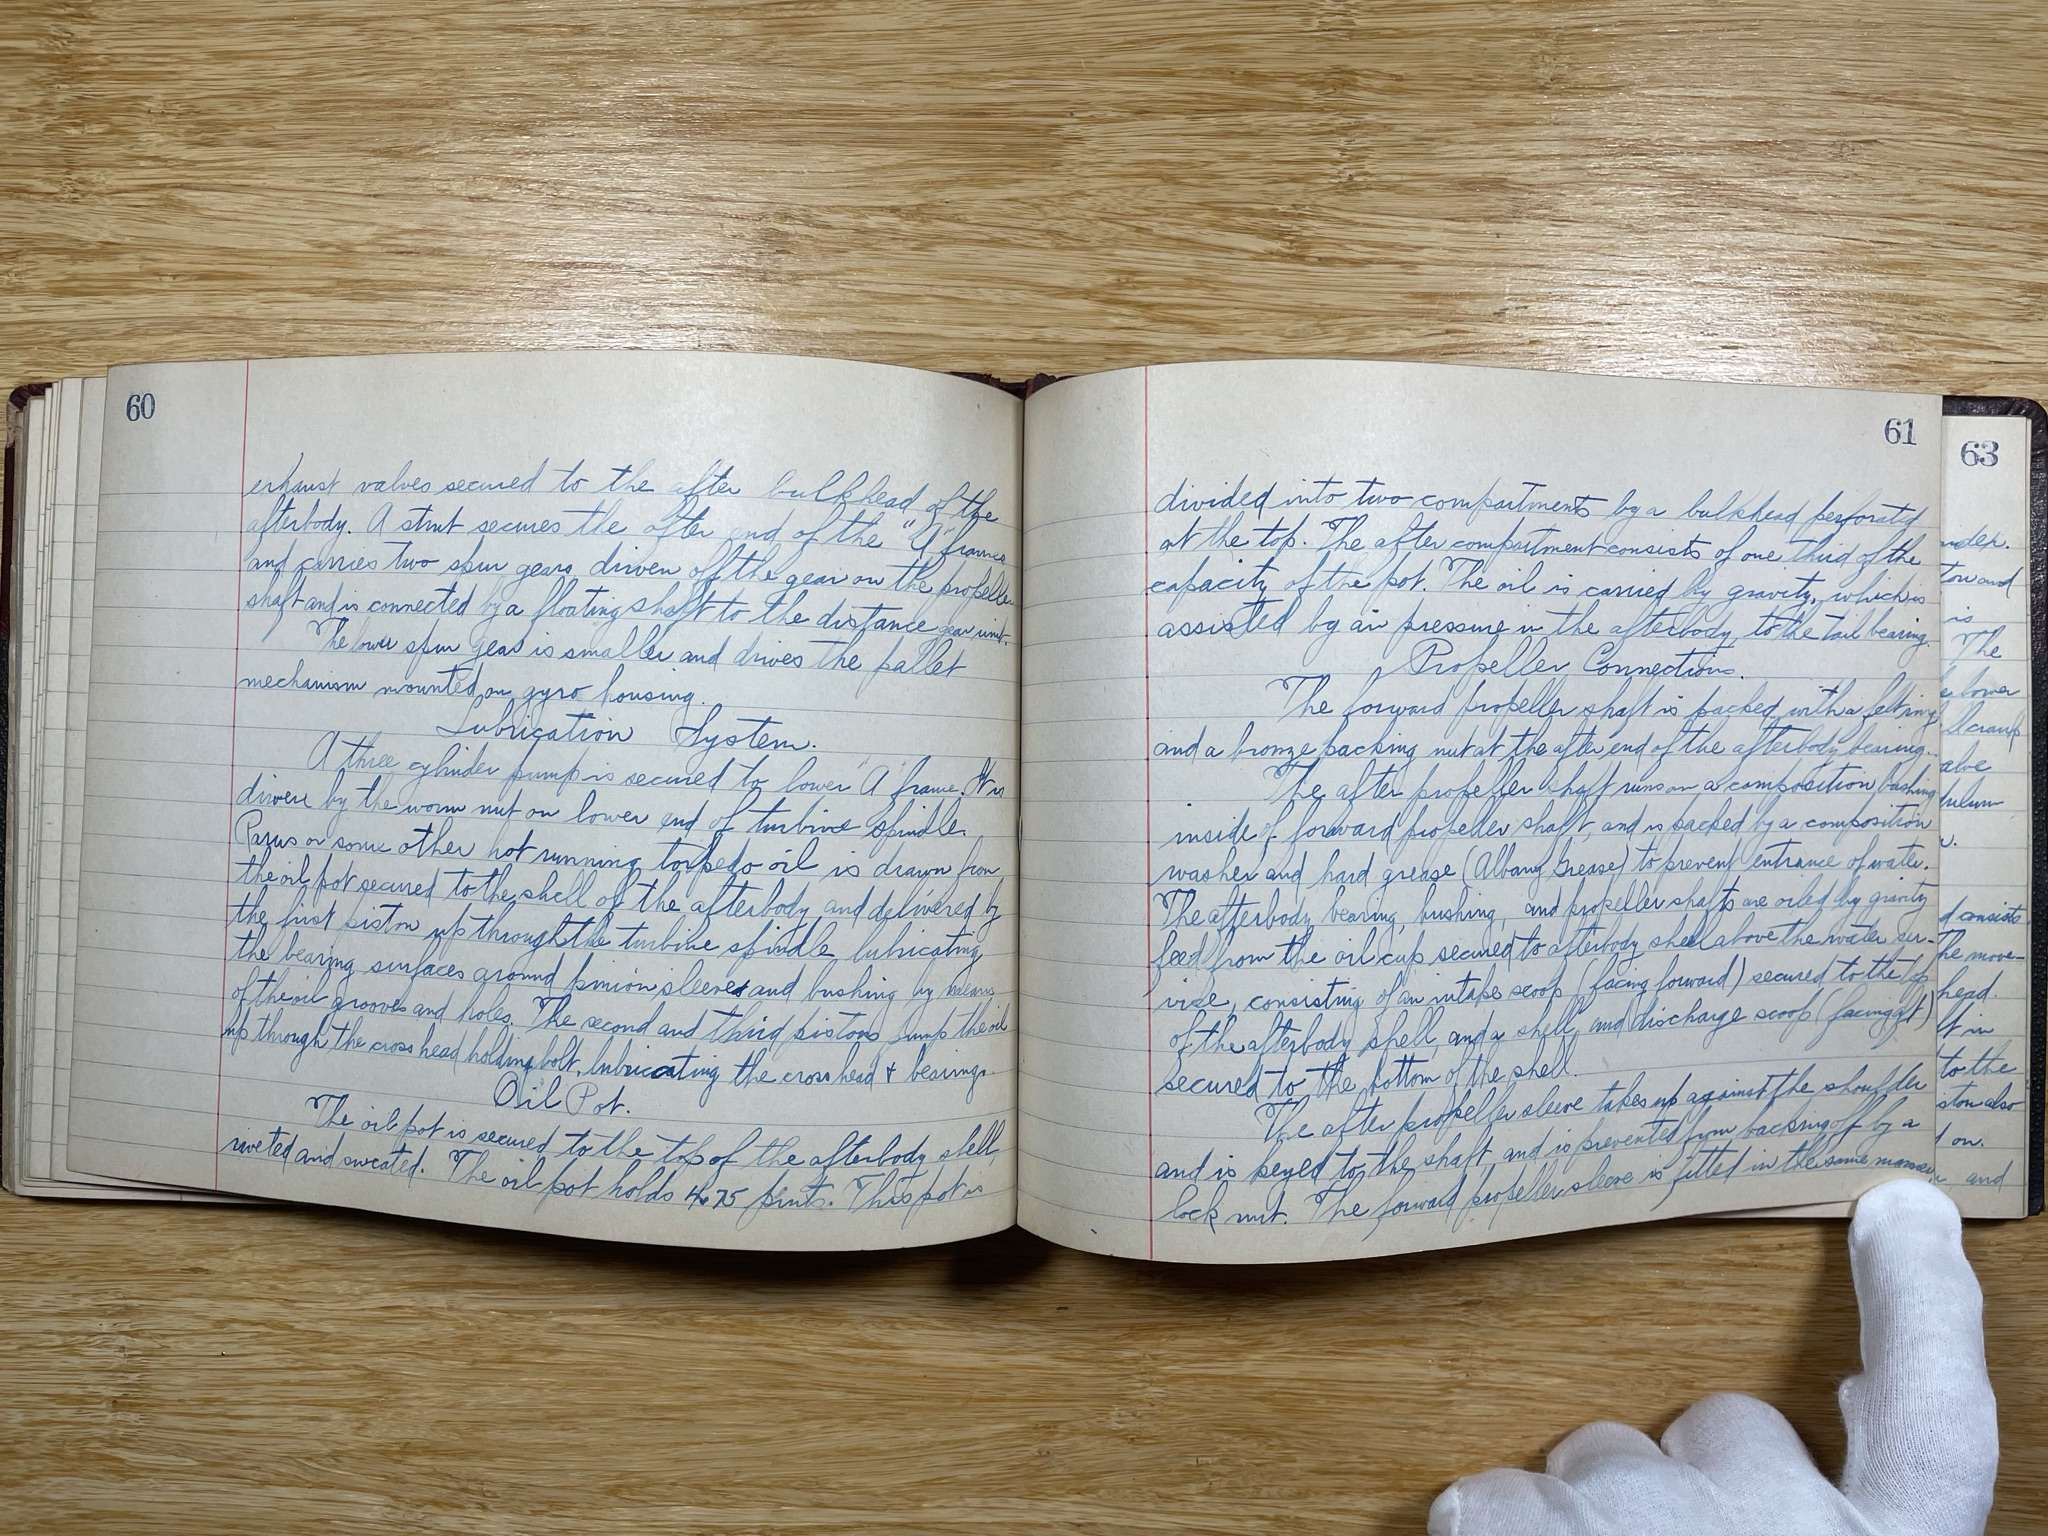 60
exhaust valves secured to the after bulkhead of the
afterbody. A strut secures the after end of the "A" frames
and carries two spur gears driven off the gear on the propeller
shaft and is connected by a floating shaft to the distance gear unit.
The lower spur gear is smaller and drives the pallet
mechanism mounted on gyro housing.
Lubrication System.
A three cylinder pump is secured to lower "A" frame. It is
driven by the worm nut on lower end of turbine spindle.
or some other hot running torpedo oil is drawn from
the oil pot secured to the shell of the afterbody and delivered by
the first piston up through the turbine spindle lubricating
the bearing surfaces around pinion sleeves and bushing by means
of the oil grooves and holes. The second and third pistons pump the oil
up through the cross head holding bolt, lubricating the cross head + bearings.
Oil Pot.
The oil pot is secured to the top of the afterbody shell,
riveted and sweated. The oil pot holds 4.75 pints. This pot is
61
divided into two compartments by a bulkhead perforated
at the top. The after compartment consists of one third of the
capacity of the pot. The oil is carried by gravity, which is
assisted by air pressure in the afterbody, to the tail bearing.
Propeller Connections.
The forward propeller shaft is packed with a felt ring
and a bronze packing nut at the after end of the afterbody bearing.
The after propeller shaft runs on a composition bushing
inside of forward propeller shaft, and is packed by a composition
washer and hard grease (Albany Grease) to prevent entrance of water.
The afterbody bearing, bushing, and propeller shafts are oiled by gravity
feed from the oil cup secured to afterbody shell above the water ser-
vice, consisting of an intake scoop (facing forward) secured to the top
of the afterbody shell, and a shell, and discharge scoop (facing aft)
secured to the bottom of the shell.
The after propeller sleeve takes up against the shoulder
and is keyed to the shaft and is prevented from backing off by a
lock nut. The forward propeller sleeve is fitted in the same manner
63
and
is
The
lower
consists
The move-
head.
in
to the
also
on.
and